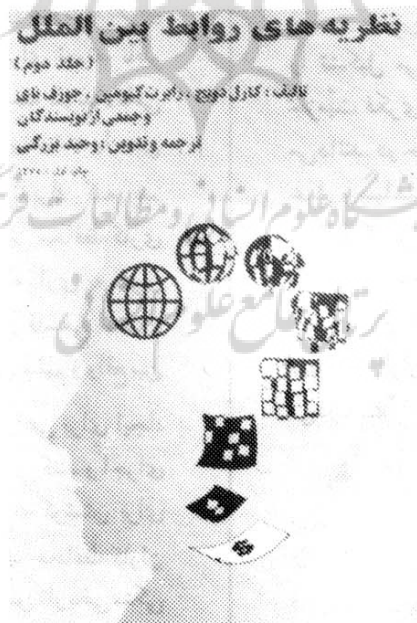 نظریه های روابط بین الملل
(جلد دوم)
تالیف: کارل دویچ، رابرت کیوهین، جوزف نای
وجمعی از نویسندگان
ترجمه وتدوین: وحید بزرگی
پژوهشگاه علوم انسانی و مطالعات فرهنگی
پرتال جامع علوم انسانی